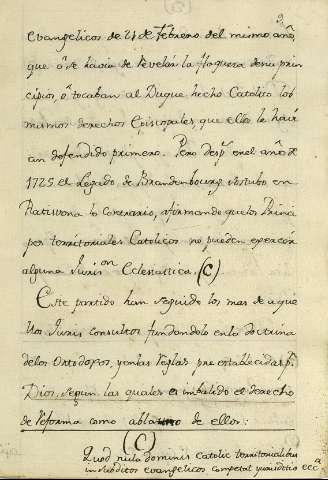 2
evangelicos de 21 de Febrero del mismo año,
que ó se havia de revelàr la flaqueza de sus prin
cipios, ó tocaban al Duque hecho Catolico los
mismos derechos Episcopales, que ellos le havi
an defendido primero. Pero desp.^s en el año de
1725 el Legado de Brandenbourg sostubo en
Ratisvona lo contrario, afirmando que los Princi
pes territoriales Catolicos no pueden exercèr
alguna Juris^on Eclesiastica. (C)
Este partido han seguido los mas de aque
llos Juris consultos fundandolo en la doctrina
de los Ortodoxos, y en las reglas pre establecidas p.^r
Dios, segun las quales es imbalido el derecho
de reforma como de ellos:
(C)
Quod nulla dominis Catolic territorialibus
in subditos evangelicos competat jurisdictio ecc^a